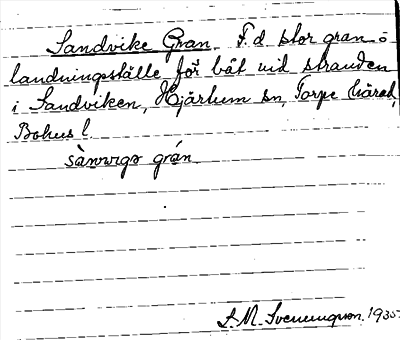 Sandvike Gran. F.d stor gran o
landningsställe för båt vid stranden
i Sandviken, Hjärtum sn, Torpe härad,
Bohus l.
sànvigə grán
S.M. Svenungson. 1935